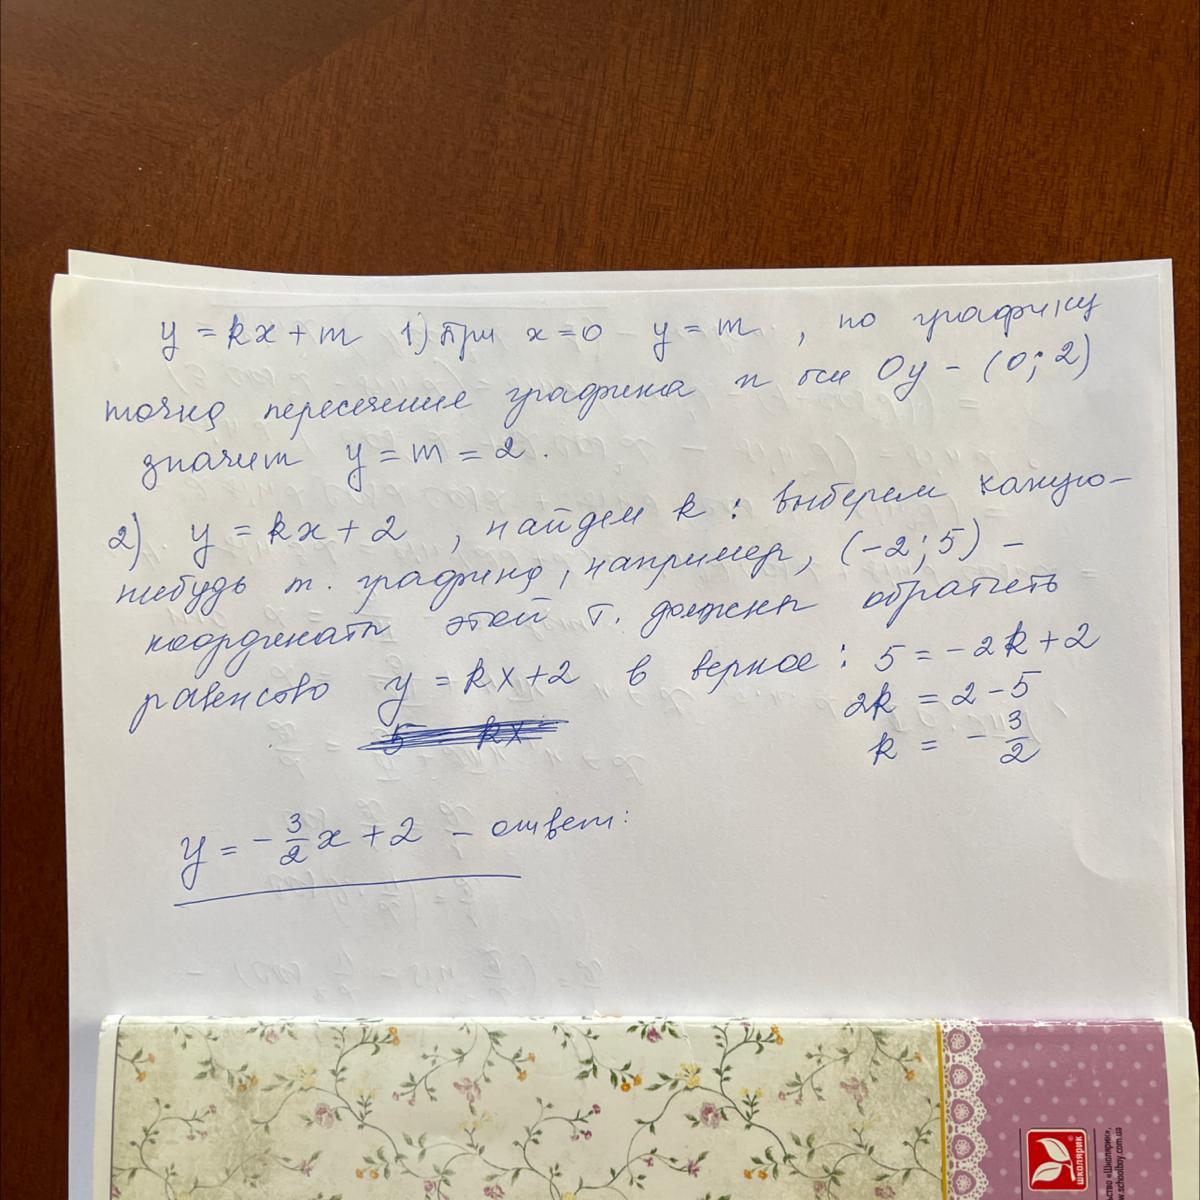 y = kx + m 1) При x = 0 y = m, по графику
точка пересечение графика и оси Oy – (0; 2)
значит y = m = 2.
2) y = kx + 2, найдем k: выберем какую-
нибудь т. графика, например, (-2; 5) –
координаты этой т. должны обратить
равенство y = kx + 2 в верное: 5 = -2k + 2
2k = 2 - 5
k = - 3/2
y = - 3/2 x + 2 – ответ:
ШКОЛЯРИК
®
www.schoolboy.com.ua